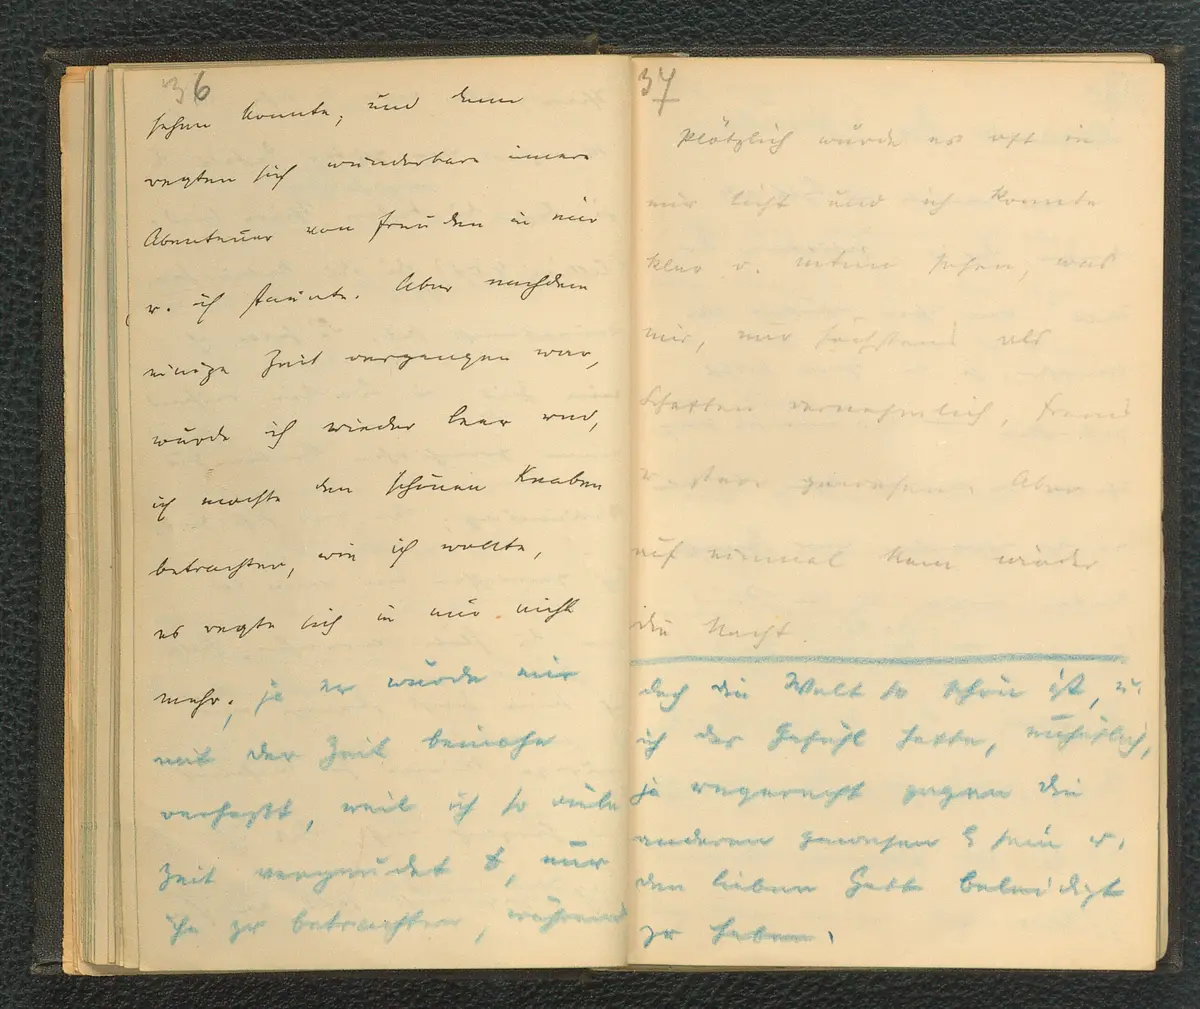 36
sehen konnte, und dann
regten sich wunderbare innere
Abenteuer von Freuden in mir
u. ich staunte. Aber nachdem
einige Zeit vergangen war,
wurde ich wieder leer und,
ich mochte den schönen Knaben
betrachten, wie ich wollte,
es regte sich in mir nicht
mehr, ja er wurde mir
mit der Zeit beinahe
verhaßt, weil ich so viele
Zeit vergeudet, nur
ihn zu betrachten, während
37
Plötzlich wurde es oft in
mir licht und ich konnte
klar u. intim sehen, was
mir, nur höchstens als
Schatten vernehmlich, fremd
u. starr gewesen. Aber
auf einmal kam wieder
die Nacht.
doch die Welt so schön ist, u.
ich das Gefühl hatte,
ja ungerecht gegen die
anderen gewesen z sein u.
den lieben Gott beleidigt
zu haben.